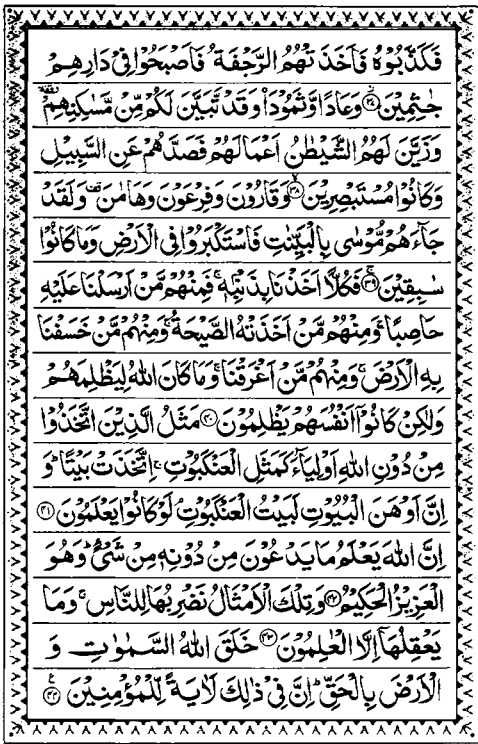 فَكَذَّبُوْهُ فَاَخَذَتْهُمُ الرَّجْفَةُ فَاَصْبَحُوْا فِيْ دَارِهِمْ
جٰثِمِيْنَ ﴿۳۷﴾ وَعَادًا وَّثَمُوْدَا۟ وَقَدْ تَّبَيَّنَ لَكُمْ مِّنْ مَّسٰكِنِهِمْ
وَزَيَّنَ لَهُمُ الشَّيْطٰنُ اَعْمَالَهُمْ فَصَدَّهُمْ عَنِ السَّبِيْلِ
وَكَانُوْا مُسْتَبْصِرِيْنَ ﴿۳۸﴾ وَقَارُوْنَ وَفِرْعَوْنَ وَهَامٰنَ وَلَقَدْ
جَآءَهُمْ مُّوْسٰى بِالْبَيِّنٰتِ فَاسْتَكْبَرُوْا فِي الْاَرْضِ وَمَا كَانُوْا
سٰبِقِيْنَ ﴿۳۹﴾ فَكُلًّا اَخَذْنَا بِذَنْۢبِهٖ ۚ فَمِنْهُمْ مَّنْ اَرْسَلْنَا عَلَيْهِ
حَاصِبًا ۚ وَمِنْهُمْ مَّنْ اَخَذَتْهُ الصَّيْحَةُ ۚ وَمِنْهُمْ مَّنْ خَسَفْنَا
بِهِ الْاَرْضَ ۚ وَمِنْهُمْ مَّنْ اَغْرَقْنَا ۚ وَمَا كَانَ اللّٰهُ لِيَظْلِمَهُمْ
وَلٰكِنْ كَانُوْٓا اَنْفُسَهُمْ يَظْلِمُوْنَ ﴿۴۰﴾ مَثَلُ الَّذِيْنَ اتَّخَذُوْا
مِنْ دُوْنِ اللّٰهِ اَوْلِيَآءَ كَمَثَلِ الْعَنْكَبُوْتِ ۚ اِتَّخَذَتْ بَيْتًا ؕ وَ
اِنَّ اَوْهَنَ الْبُيُوْتِ لَبَيْتُ الْعَنْكَبُوْتِ ۘ لَوْ كَانُوْا يَعْلَمُوْنَ ﴿۴۱﴾
اِنَّ اللّٰهَ يَعْلَمُ مَا يَدْعُوْنَ مِنْ دُوْنِهٖ مِنْ شَيْءٍ ؕ وَهُوَ
الْعَزِيْزُ الْحَكِيْمُ ﴿۴۲﴾ وَتِلْكَ الْاَمْثَالُ نَضْرِبُهَا لِلنَّاسِ ۚ وَمَا
يَعْقِلُهَآ اِلَّا الْعٰلِمُوْنَ ﴿۴۳﴾ خَلَقَ اللّٰهُ السَّمٰوٰتِ وَ
الْاَرْضَ بِالْحَقِّ ؕ اِنَّ فِيْ ذٰلِكَ لَاٰيَةً لِّلْمُؤْمِنِيْنَ ﴿۴۴﴾